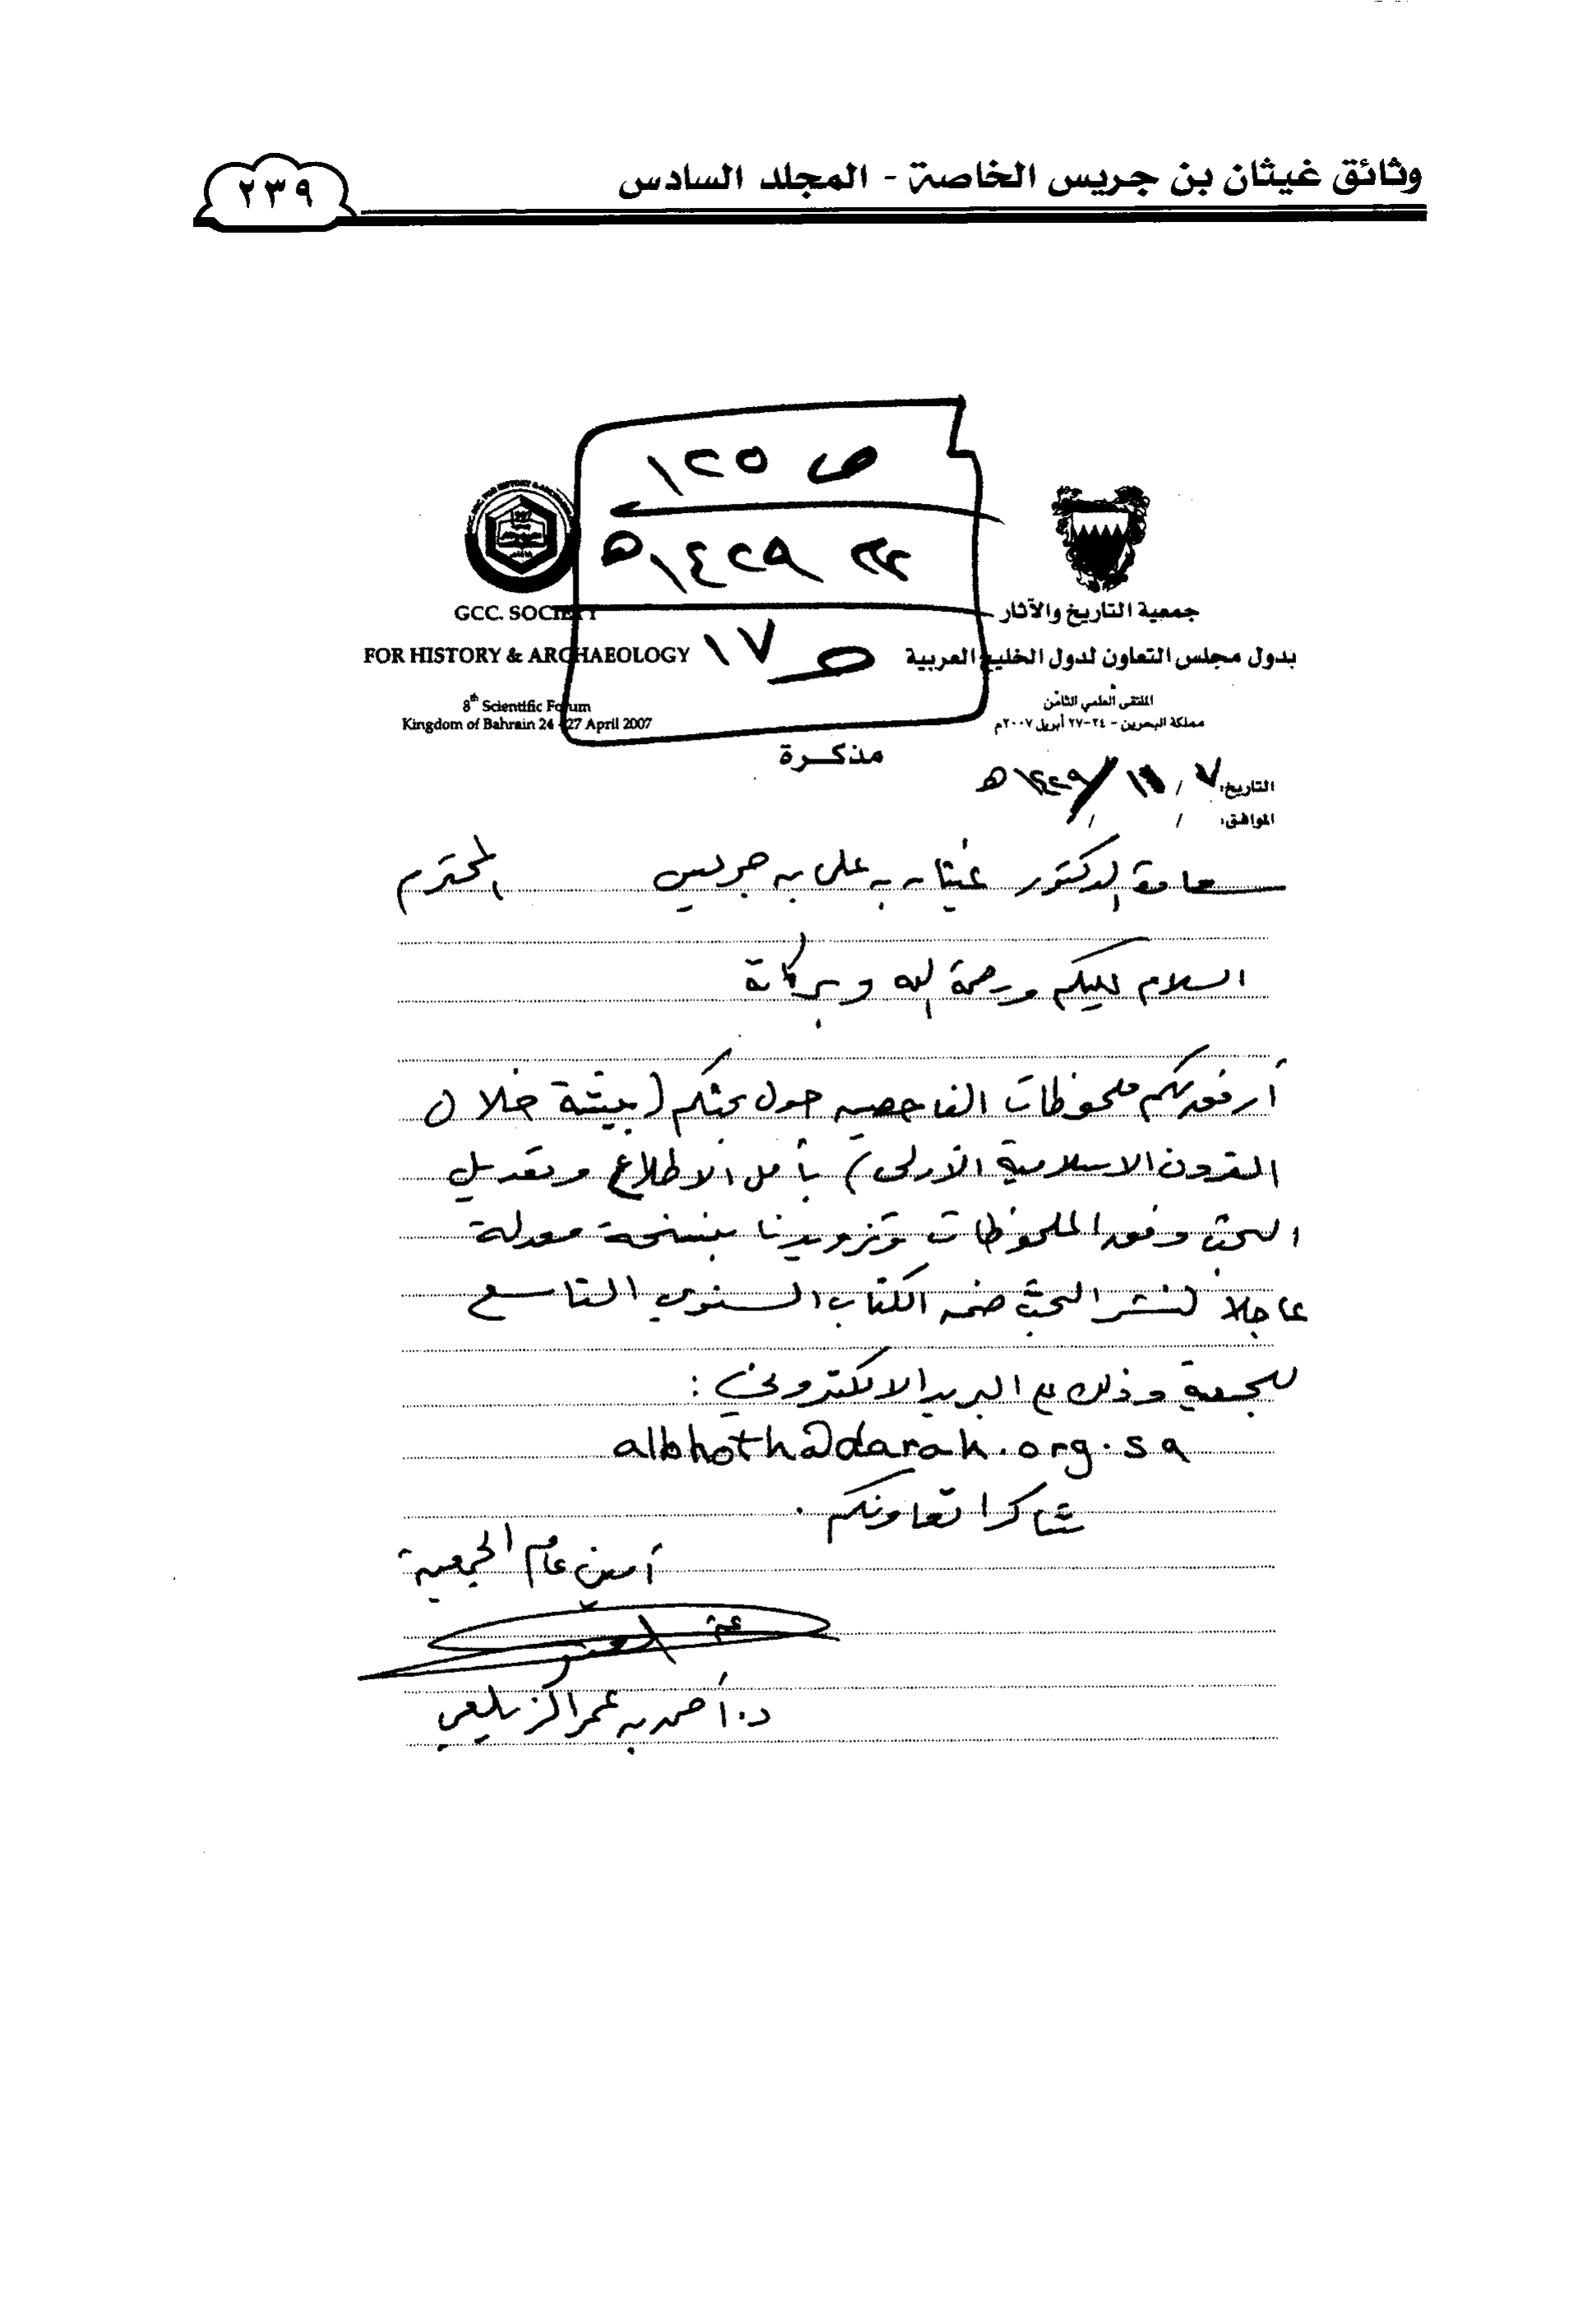 وثائق غيثان بن جريس الخاصة - المجلد السادس
٢٣٩
ص ١٢٥
١٤٢٩هـ
ص ١٧
جمعية التاريخ والآثار
بدول مجلس التعاون لدول الخليج العربية
الملتقى العلمي الثامن
مملكة البحرين - ٢٤-٢٧ أبريل ٢٠٠٧م
GCC. SOCIETY
FOR HISTORY & ARCHAEOLOGY
8th Scientific Forum
Kingdom of Bahrain 24 - 27 April 2007
مذكرة
التاريخ: ٧ / ١١ / ١٤٢٩هـ
الموافق: / /
سعادة الدكتور غيثان بن علي بن جريس المحترم
السلام عليكم ورحمة الله وبركاتة
أرفق لكم ملحوظات الفاحصين حول بحثكم (بيشة خلال
القرون الاسلامية الأولى) بأمل الاطلاع وتعديل
البحث وفق الملحوظات وتزويدنا بنسخة معدلة
عاجلاً لنشر البحث ضمن الكتاب السنوي التاسع
للجمعية وذلك مع البريد الالكتروني :
albhoth@darah.org.sa
شاكرا تعاونكم .
أمين عام الجمعية
د. أحمد بن عمر الزيلعي